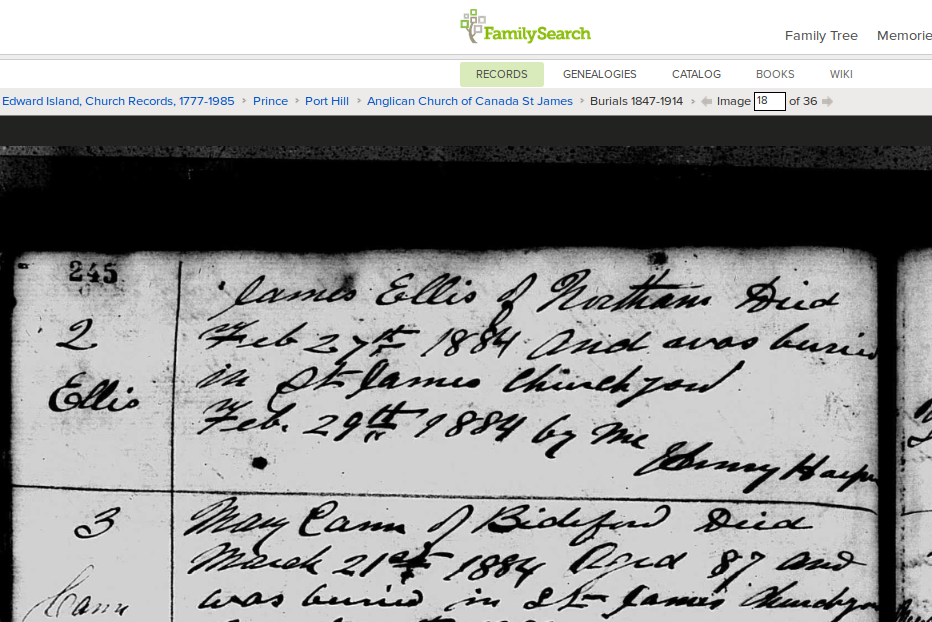 FamilySearch
Family Tree Memorie
RECORDS GENEALOGIES CATALOG BOOKS WIKI
Edward Island, Church Records, 1777-1985 > Prince > Port Hill > Anglican Church of Canada St James > Burials 1847-1914 > Image 18 of 36
245
2
Ellis
James Ellis of Northam Died
Feb 27th 1884 And was buried
in St James Churchyard
Feb. 29th 1884 by me
Henry Harper
3
Cann
Mary Cann of Bideford Died
March 21st 1884 Aged 87 and
was buried in St James Churchyar